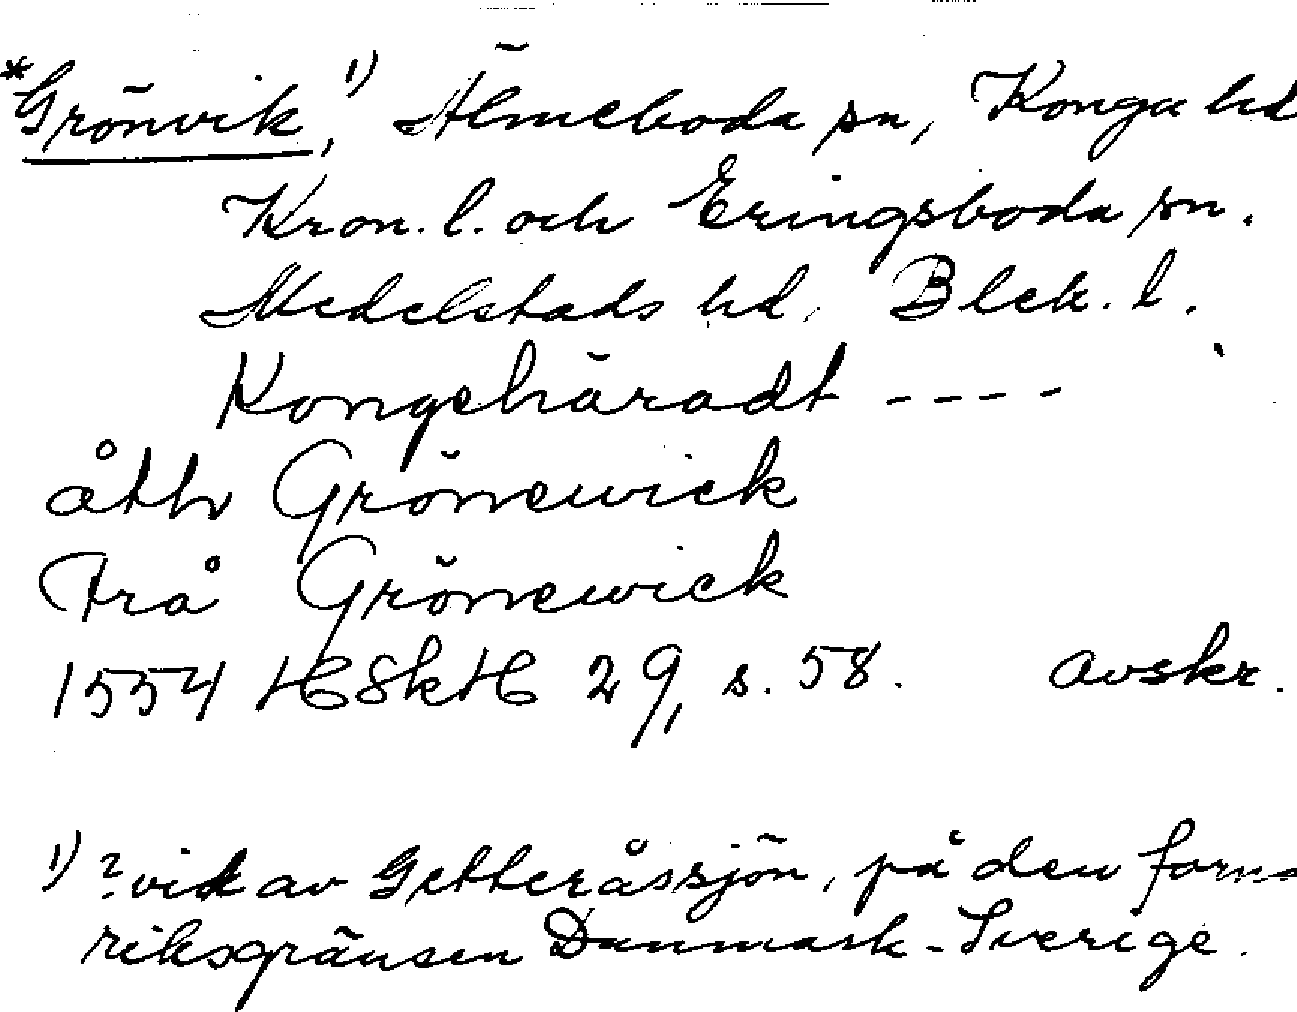 *Grönvik,¹⁾ Älmeboda sn, Konga hd
Kron. l. och Eringsboda sn.
Medelstads hd, Blek. l.
Kongehäradt ----
åth Grönewick
Frå Grönewick
1554 HSkH 29, s. 58. avskr.
¹⁾ ? vik av Getteråssjön, på den forna
riksgränsen Danmark-Sverige.